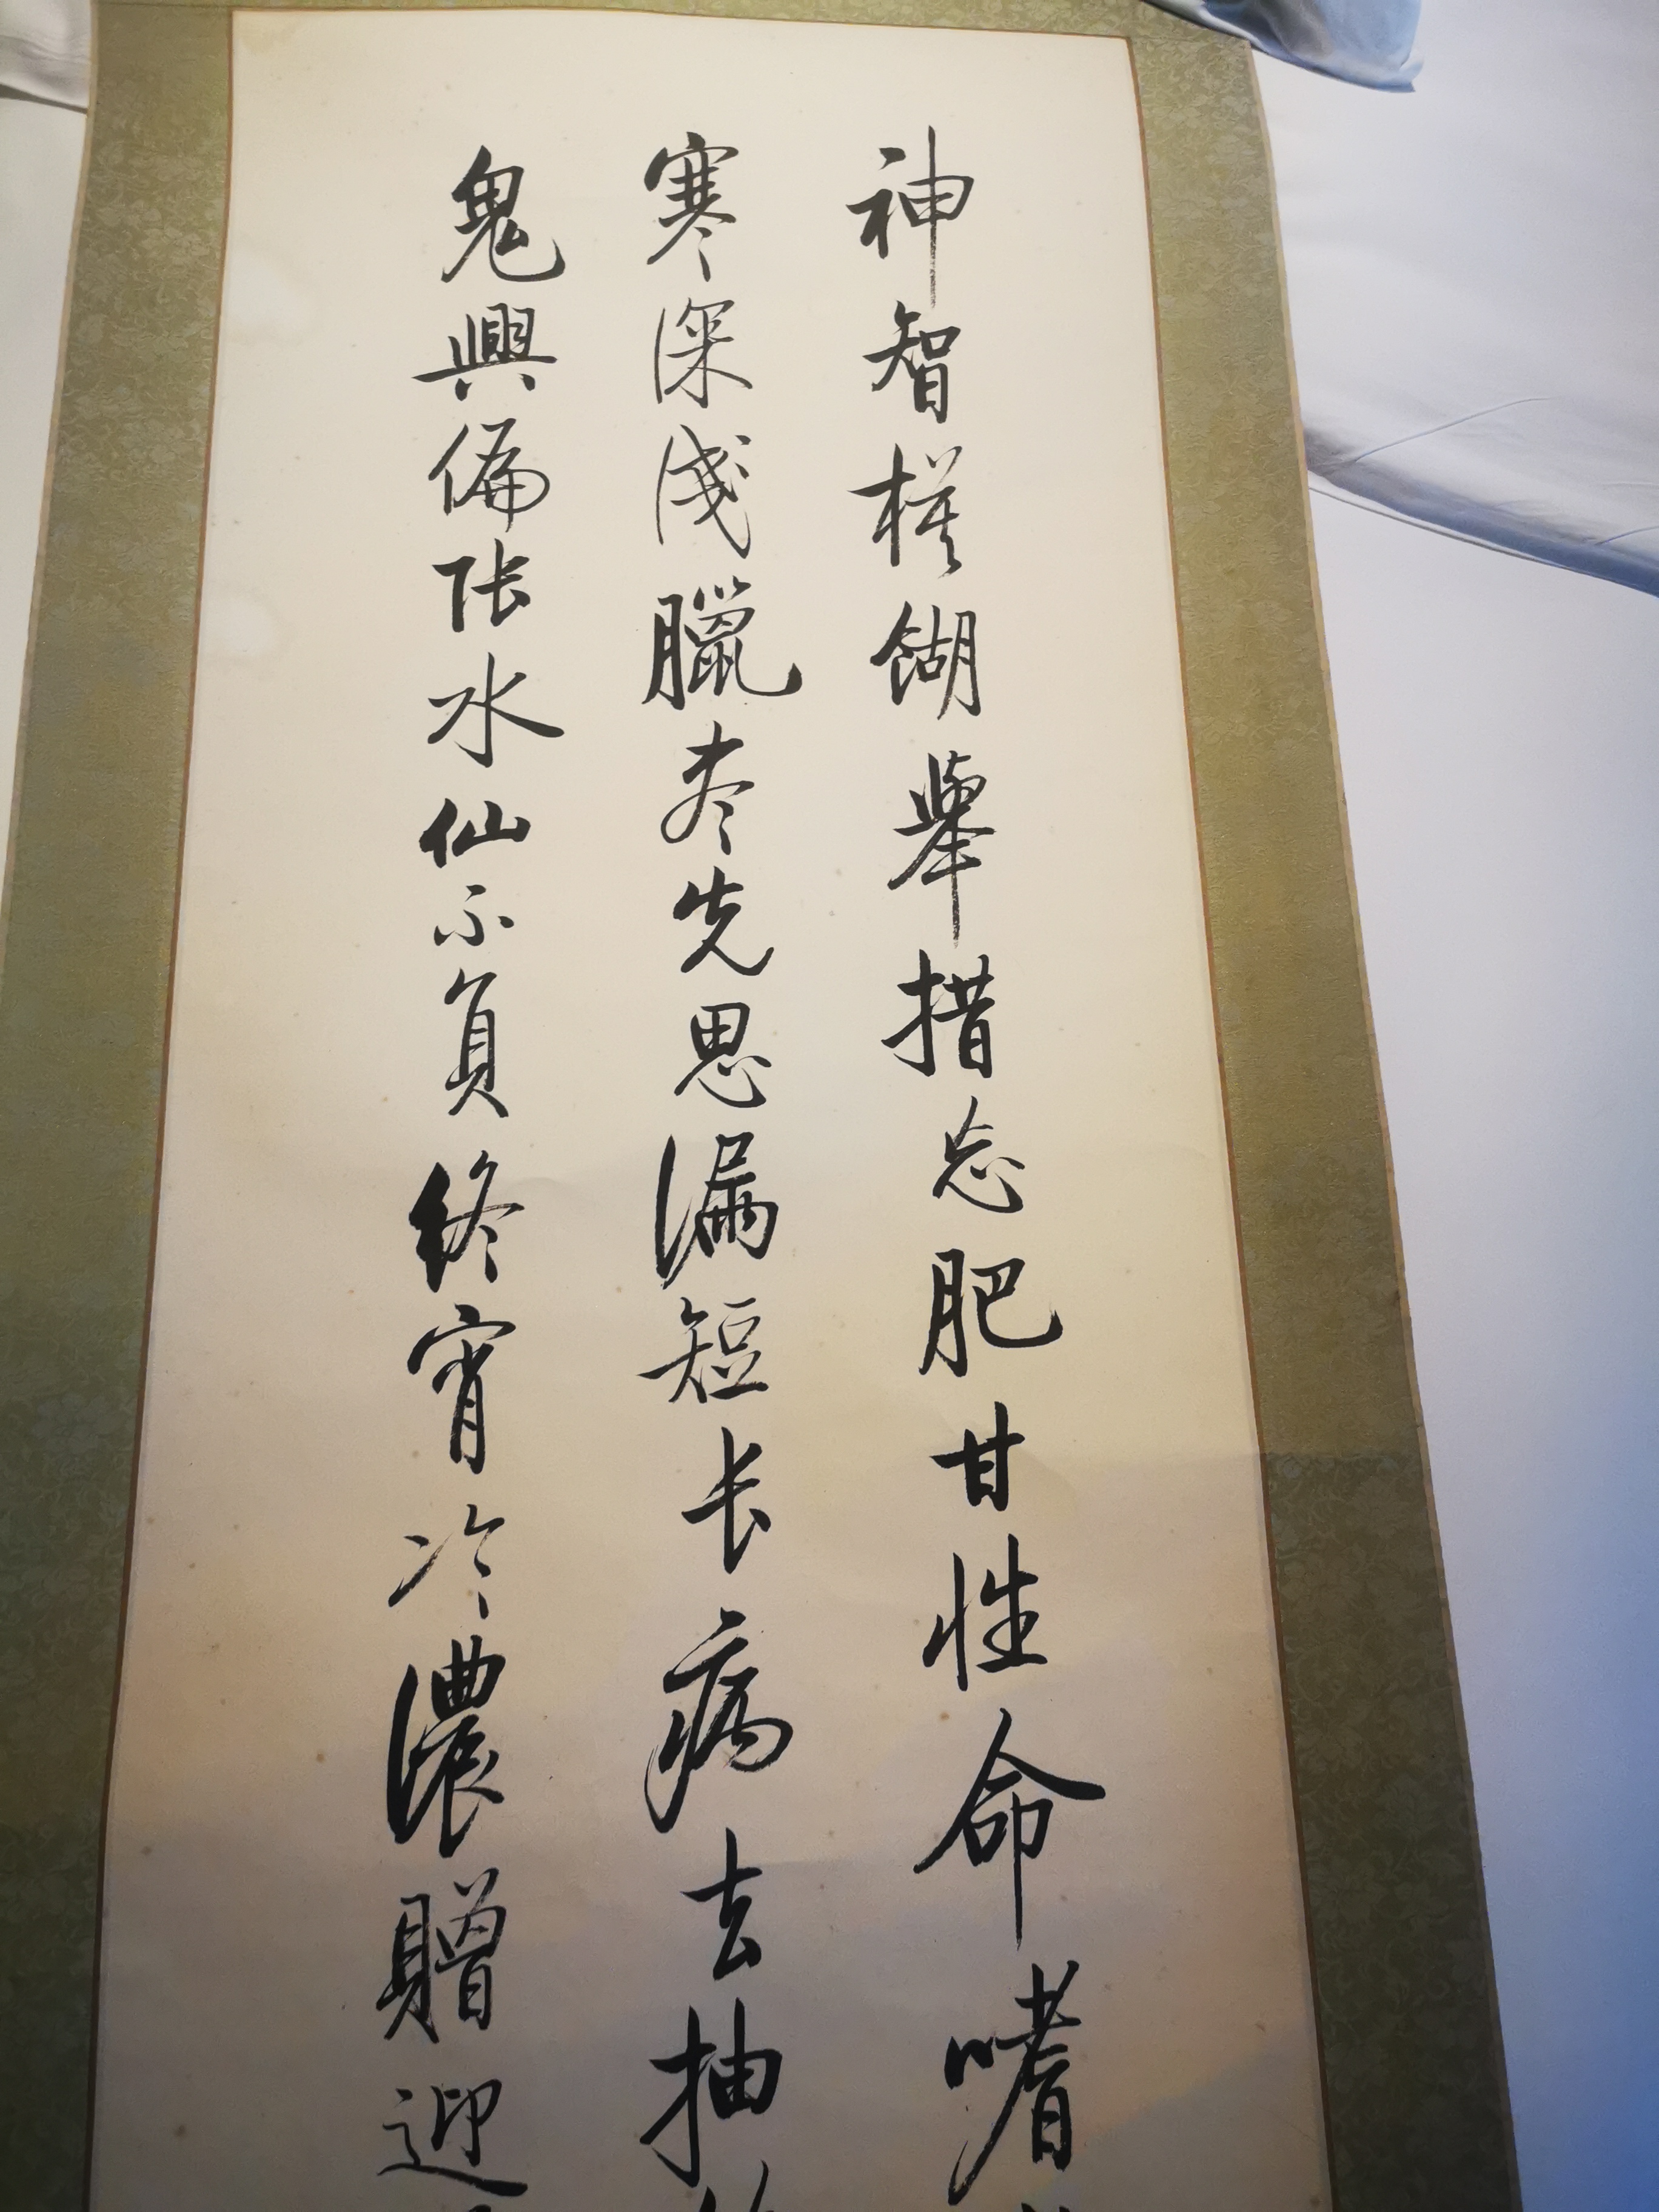 神智模餬舉措忘肥甘性命嗜
寒深浅臘尽先思漏短长病去抽
鬼興偏张水仙不負终宵冷濃贈迎